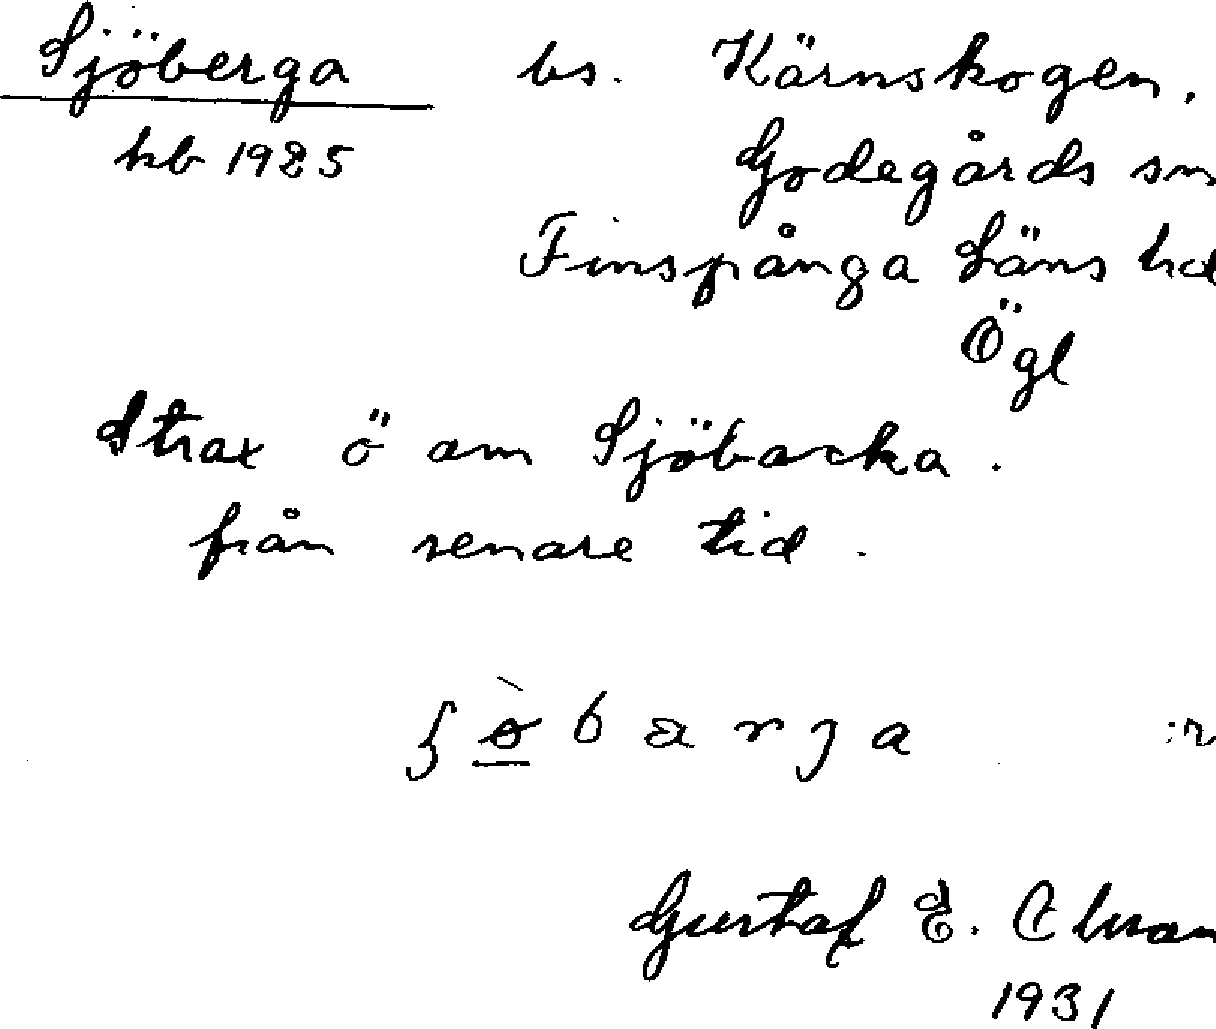 Sjöberga bs. Kärnskogen,
hb 1925 Godegårds sn
Finspånga Läns hd
Ögl
Strax ö om Sjöbacka.
från senare tid.
Gustaf E.
1931